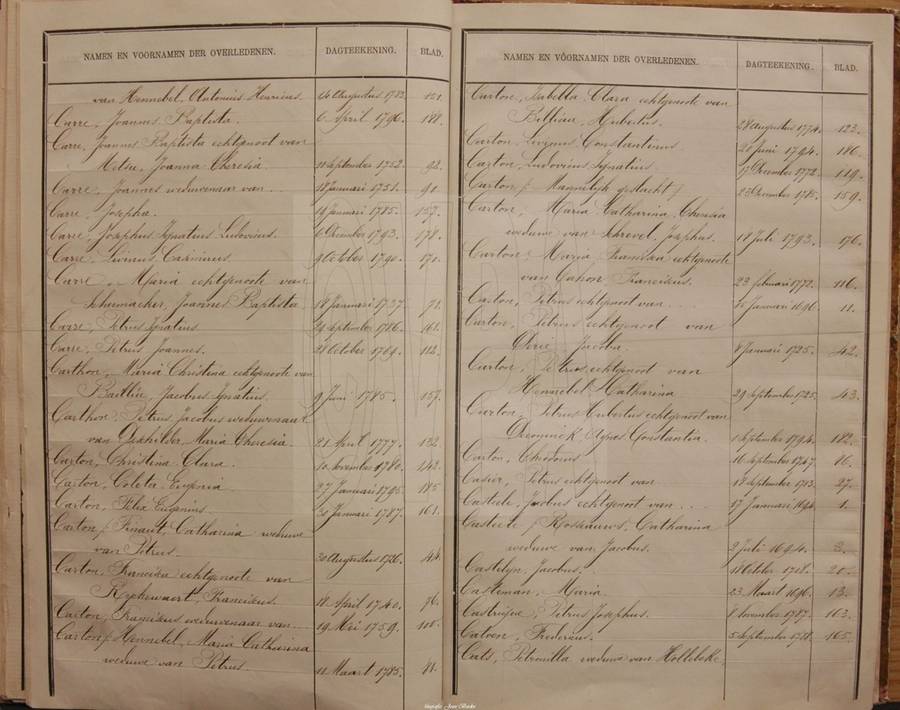 NAMEN EN VOORNAMEN DER OVERLEDENEN. DAGTEEKENING. BLAD.
van Hennebel, Antonius Henricus 20 Augustus 1782. 121.
Carre, Joannes Baptista. 6 April 1796. 188.
Carre, Joannes Baptista echtgenoot van
Metsu, Joanna Theresia. September 1752. 92.
Carre, Joannes weduwenaar van 18 Januari 1751. 91
Carre, Josepha. 19 Januari 1785. 157.
Carre, Josephus Ignatius Ludovicus. 6 December 1793. 178.
Carre, Livinus Casimirus. 9 October 1790. 171.
Carre, Maria echtgenoote van
Schumacker, Joannes Baptista 18 Januari 1737. 71.
Carre, Petrus Ignatius 24 September 1786. 161.
Carre, Petrus Joannes. 28 October 1769. 112.
Carthon, Maria Christina echtgenoote van
Bailliu, Jacobus Ignatius. 9 Juni 1785. 157.
Carthon, Petrus Jacobus weduwenaar
van Deschilder, Maria Theresia 21 April 1777. 132
Carton, Christina Clara. 10 November 1780. 142.
Carton, Coleta Eugenia 27 Januari 1795. 185
Carton, Felix Eugenius 30 Januari 1787. 161.
Carton / Pinault, Catharina weduwe
van Petrus. 30 Augustus 1726. 44.
Carton, Francisca echtgenoote van
Ryckewaert, Franciscus. 18 April 1740. 76.
Carton, Franciscus weduwenaar van 19 Mei 1759. 100.
Carton / Hennebel, Maria Catharina
weduwe van Petrus 11 Maart 1735. 81.
NAMEN EN VOORNAMEN DER OVERLEDENEN. DAGTEEKENING. BLAD.
Carton, Isabella Clara echtgenoote van
Billiau, Hubertus. 28 Augustus 1774. 123.
Carton, Livinus Constantinus 20 Juni 1794. 186.
Carton, Ludovicus Ignatius. 17 December 1772. 119.
Carton / Mannelijk geslacht / 23 December 1785. 159.
Carton, Maria Catharina Theresia
weduwe van Schrevel, Josephus. 18 Juli 1793. 176.
Carton, Maria Francisca echtgenoote
van Cahon, Franciscus. 23 februari 1772. 116.
Carton, Petrus echtgenoot van 30 Januari 1696. 11.
Carton, Petrus echtgenoot van
Jacoba. 8 Januari 1725. 42.
Carton, Petrus echtgenoot van
Hennebel, Catharina 29 September 1725. 43.
Carton, Petrus Hubertus echtgenoot van
Deconinck, Agnes Constantia. 1 September 1794. 182.
Carton, Theodorus 16 September 1747 86.
Casier, Petrus echtgenoot van 18 September 1713. 27.
Casteele, Jacobus echtgenoot van 17 Januari 1694 1.
Casteele / Rosseauws, Catharina
weduwe van Jacobus. 2 Juli 1694. 3.
Castelyn, Jacobus. 18 October 1708. 20.
Casteman, Maria 23 Maart 1696. 12.
Castrique, Petrus Josephus. 8 November 1787. 163.
Catoen, Fredericus. 5 September 1788. 165.
Cats, Petronilla weduwe van Hollebeke